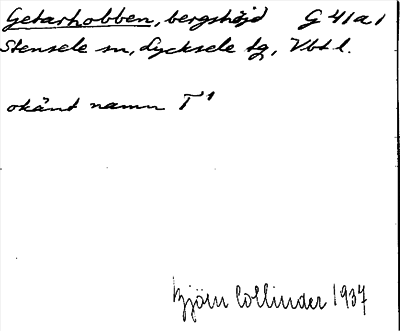 Getarhobben, bergshöjd G 41a1
Stensele sn, Lycksele tg, Vbtl.
okänt namn T¹
Björn Collinder 1937